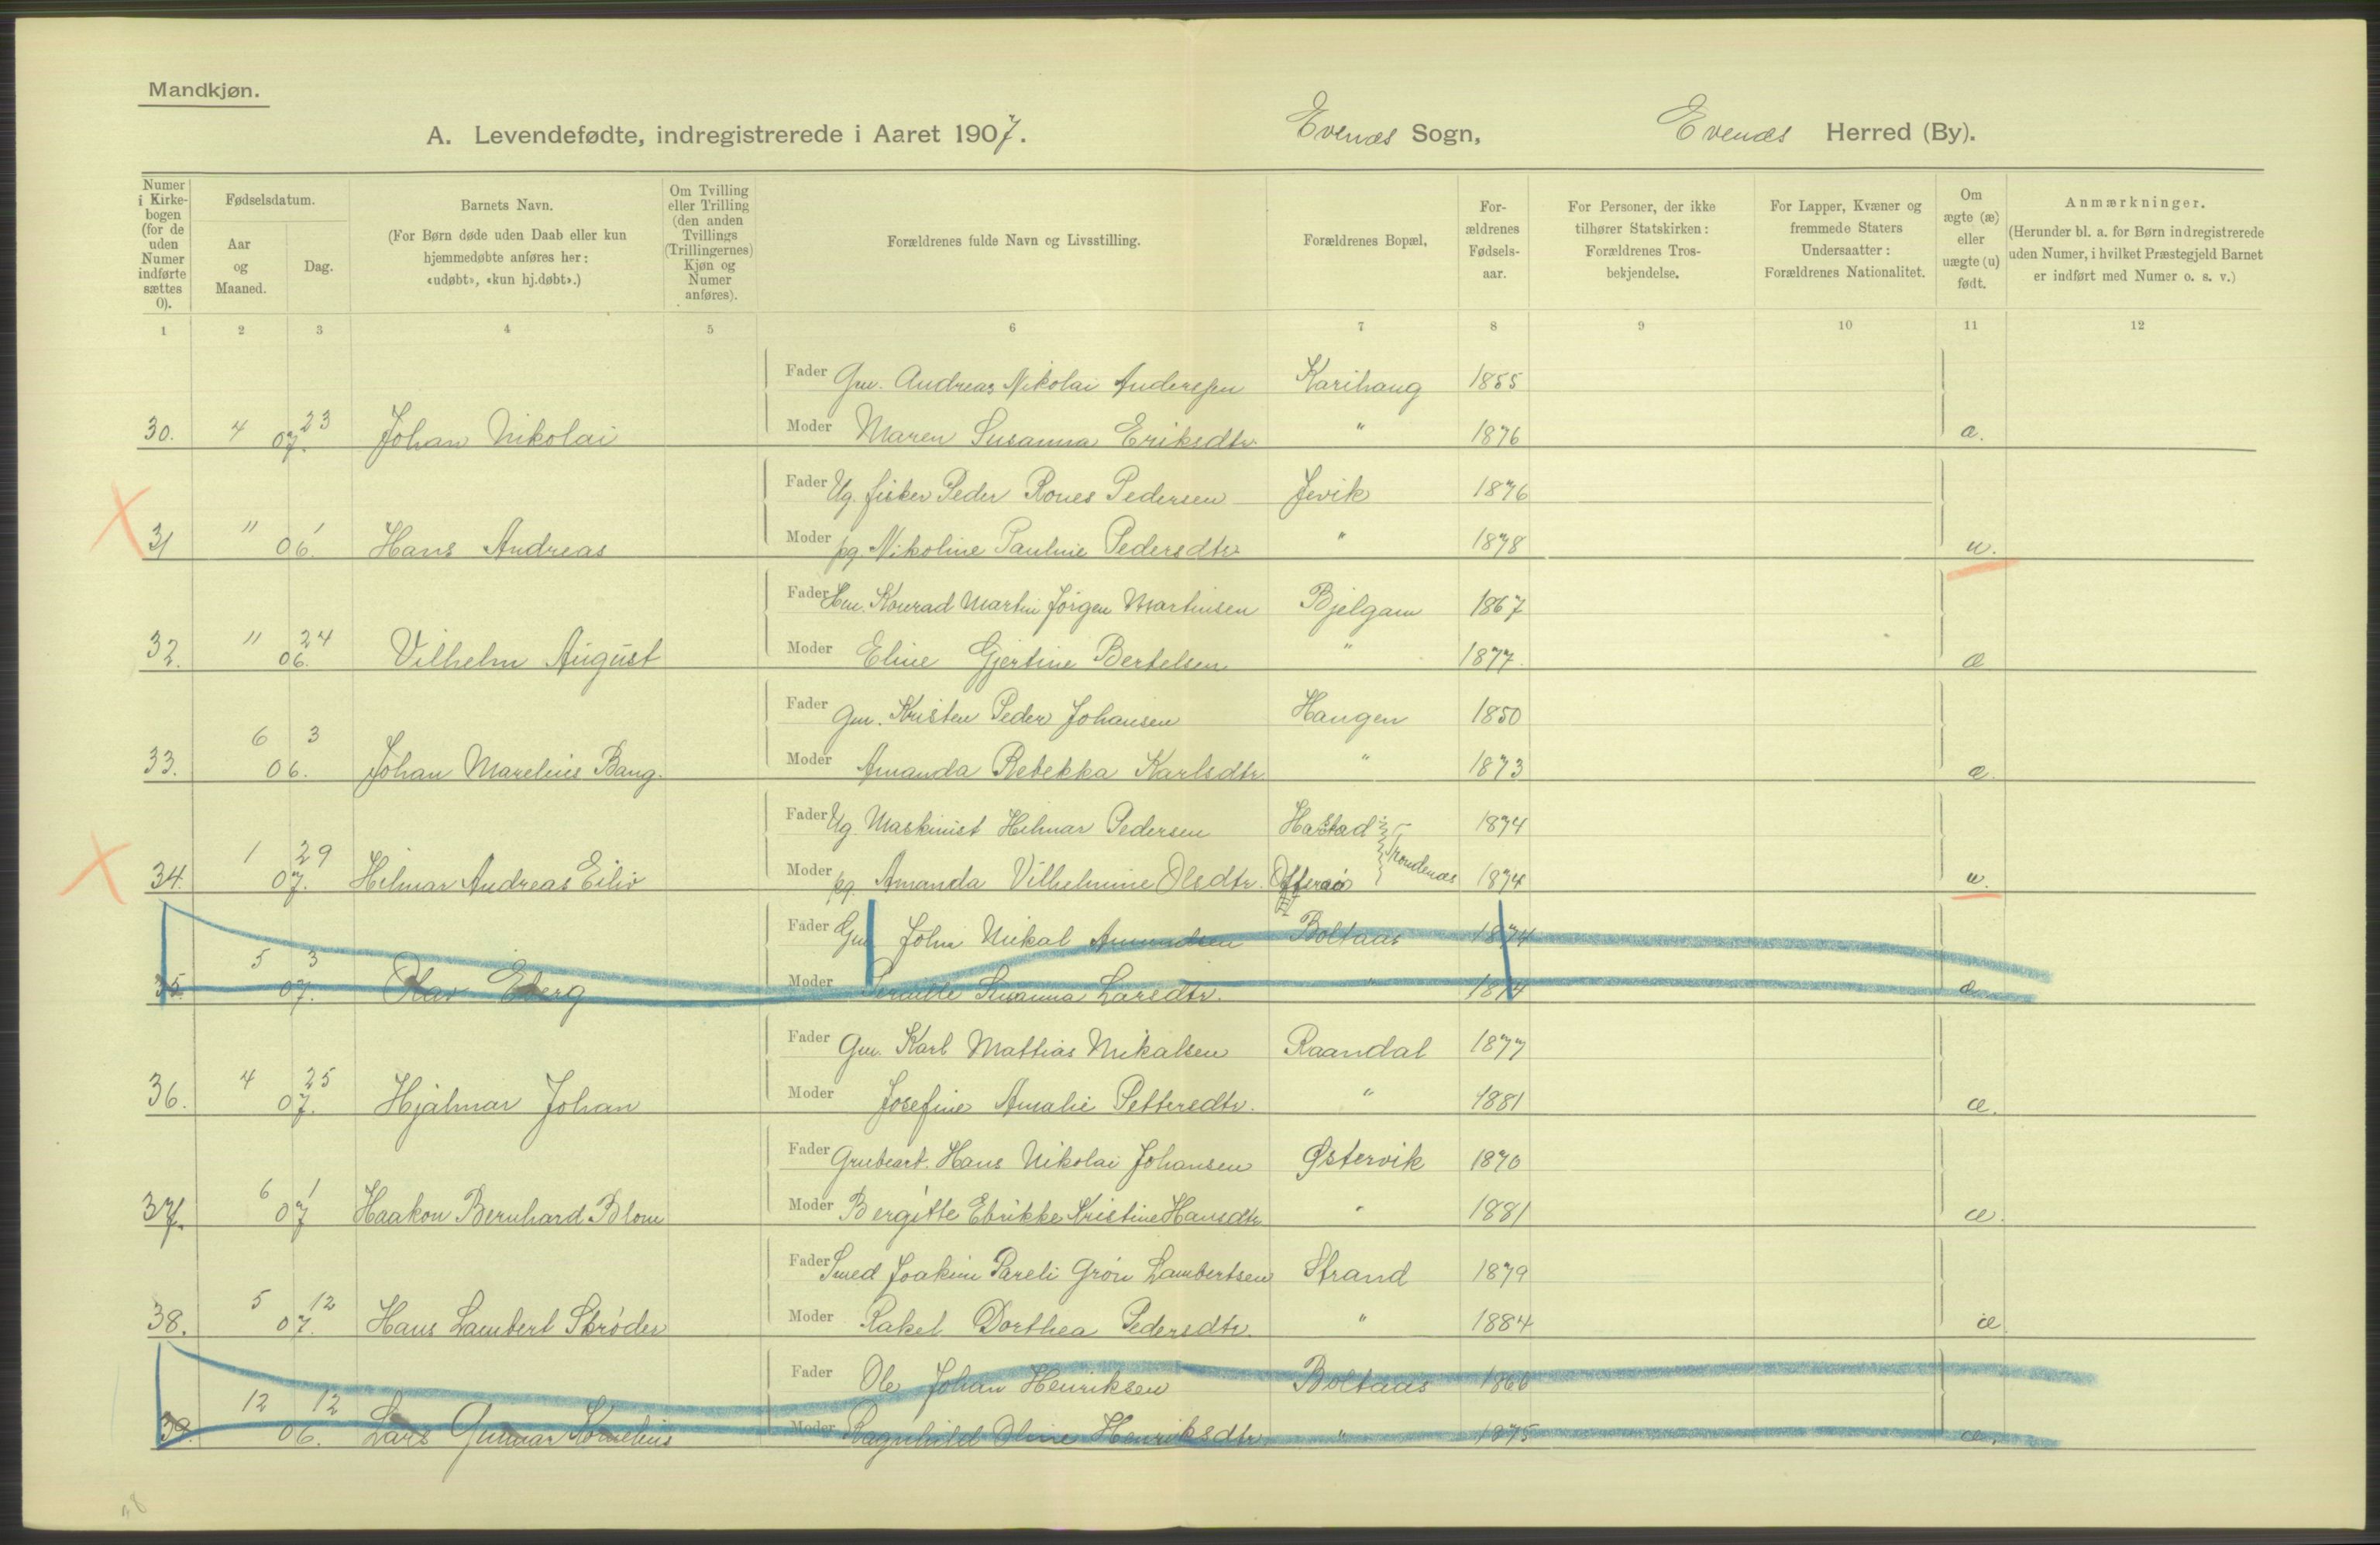 Mandkjøn.
A. Levendefødte, indregistrerede i Aaret 1907. Evenæs Sogn, Evenæs Herred (By).
Numer i Kirkebogen (for de uden Numer indførte sættes 0).
Fødselsdatum.
Aar og Maaned.
Dag.
Barnets Navn.
(For Børn døde uden Daab eller kun hjemmedøbte anføres her: «udøbt», «kun hj.døbt».)
Om Tvilling eller Trilling (den anden Tvillings (Trillingernes) Kjøn og Numer anføres).
Forældrenes fulde Navn og Livsstilling.
Forældrenes Bopæl,
Forældrenes Fødselsaar.
For Personer, der ikke tilhører Statskirken: Forældrenes Trosbekjendelse.
For Lapper, Kvæner og fremmede Staters Undersaatter: Forældrenes Nationalitet.
Om ægte (æ) eller uægte (u) født.
Anmærkninger.
(Herunder bl. a. for Børn indregistrerede uden Numer, i hvilket Præstegjeld Barnet er indført med Numer o. s. v.)
1 2 3 4 5 6 7 8 9 10 11 12
Fader Gm. Andreas Nikolai Andersen Karihaug 1855
30. 4 07. 23 Johan Nikolai Moder Maren Susanna Eriksdtr. " 1876 æ.
Fader Ug. fisker Peder Rones Pedersen Jevik 1876
31 " 06. 1 Hans Andreas Moder pg. Nikoline Pauline Pedersdtr. " 1878 u.
Fader Konrad Martin Jørgen Martinsen Bjelgam 1867
32. " 06. 24 Vilhelm August Moder Eline Gjertine Bertelsen " 1877. æ
Fader Gm. Kristen Peder Johansen Haugen 1850
33. 6 06. 3 Johan Marelius Bang. Moder Amanda Rebekka Karlsdtr. " 1873 æ.
Fader Ug. Maskinist Hilmar Pedersen Harstad 1874
34. 1 07. 29 Hilmar Andreas Eiliv Moder pg. Amanda Vilhelmine Olsdtr. Trondenæs 1874 u.
Fader Gm John Nikal Amundsen Boltaas 1874
35. 5 07. 3 Olav Eberg Moder Pernille Susanna Larsdtr. " 1874 æ
Fader Gm. Karl Mattias Mikalsen Raandal 1877
36. 4 07. 25 Hjalmar Johan Moder Josefine Amalie Pettersdtr. " 1881 æ.
Fader Grubearb. Hans Nikolai Johansen Østervik 1870
37. 6 07 1 Haakon Bernhard Blom Moder Bergitte Ebrikke Kristine Hansdtr " 1881 æ.
Fader Smed Joakim Pareli Grøn Lambertsen Strand 1879
38. 5 07. 12 Hans Lambert Strøder Moder Rakel Dorthea Pedersdtr. " 1884 æ
Fader Ole Johan Henriksen Boltaas 1866
39. 12 06. 12 Lars Gunnar Kornelius Moder Ragnhild Oline Henriksdtr. " 1875 æ.